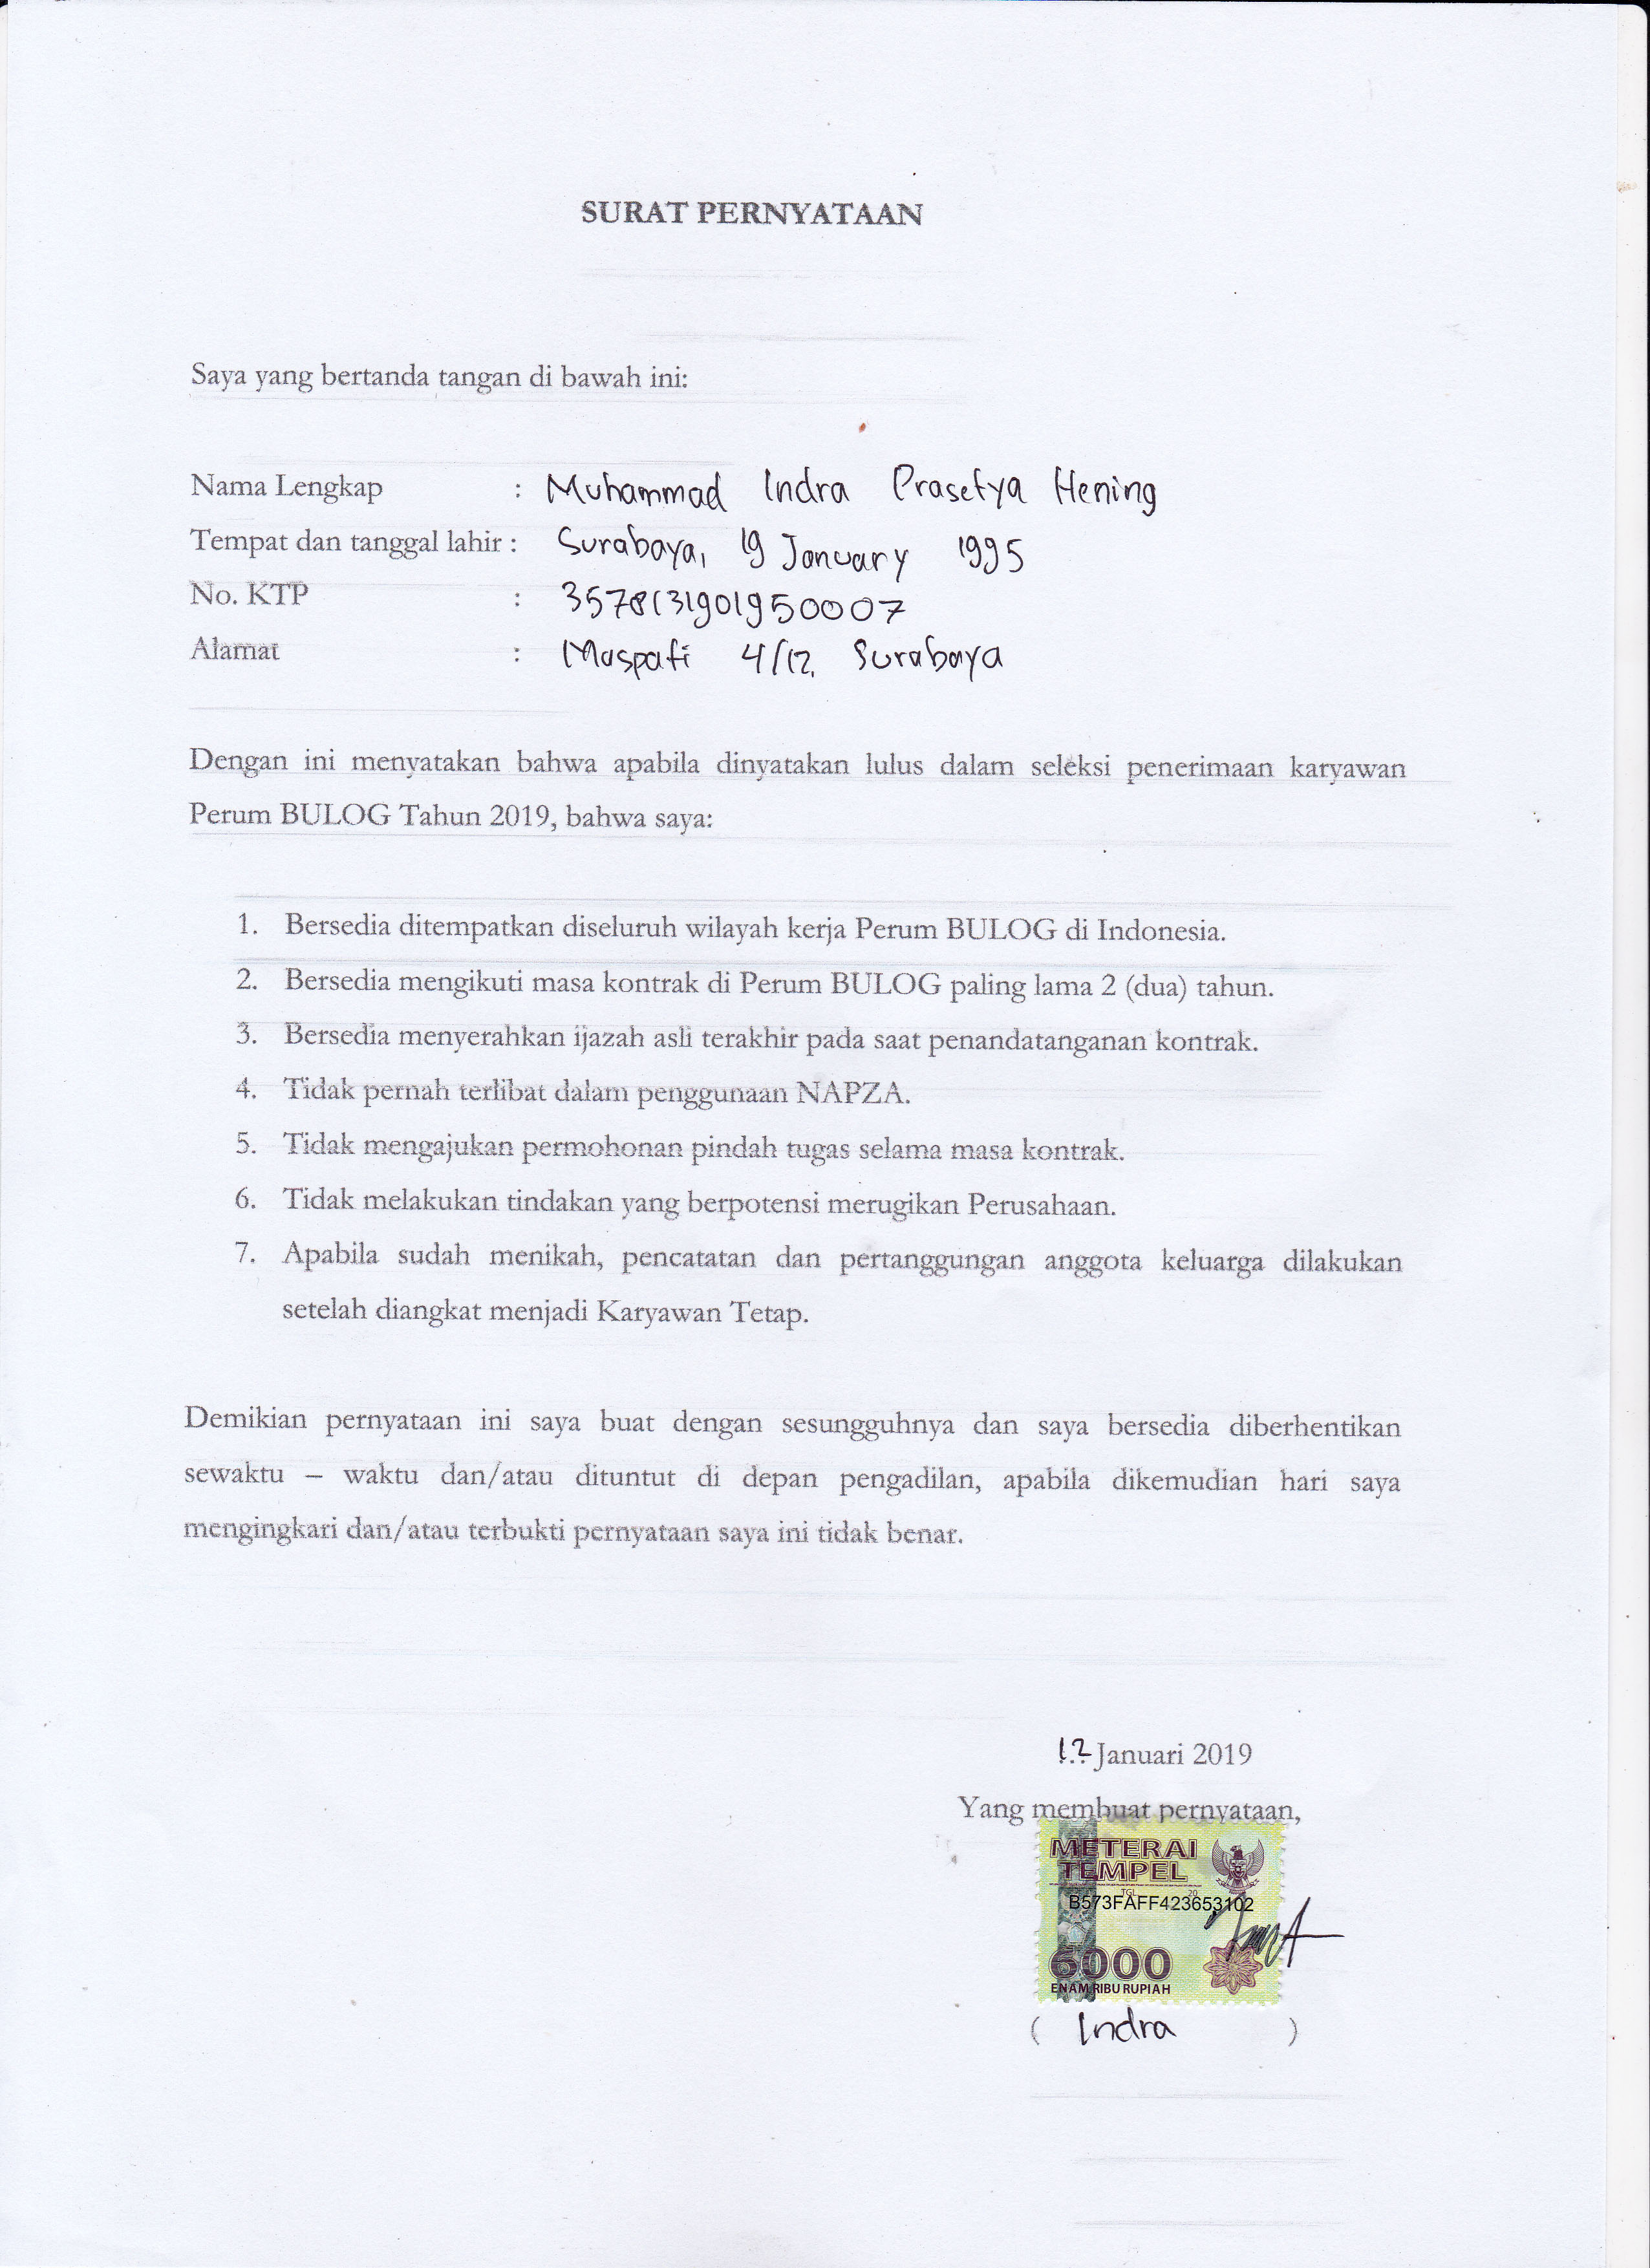 SURAT PERNYATAAN
Saya yang bertanda tangan di bawah ini:
Nama Lengkap : Muhammad Indra Prasetya Hening
Tempat dan tanggal lahir : Surabaya, 19 January 1995
No. KTP : 3578131901950007
Alamat : Maspati 4/12. Surabaya
Dengan ini menyatakan bahwa apabila dinyatakan lulus dalam seleksi penerimaan karyawan
Perum BULOG Tahun 2019, bahwa saya:
1. Bersedia ditempatkan diseluruh wilayah kerja Perum BULOG di Indonesia.
2. Bersedia mengikuti masa kontrak di Perum BULOG paling lama 2 (dua) tahun.
3. Bersedia menyerahkan ijazah asli terakhir pada saat penandatanganan kontrak.
4. Tidak pernah terlibat dalam penggunaan NAPZA.
5. Tidak mengajukan permohonan pindah tugas selama masa kontrak.
6. Tidak melakukan tindakan yang berpotensi merugikan Perusahaan.
7. Apabila sudah menikah, pencatatan dan pertanggungan anggota keluarga dilakukan
setelah diangkat menjadi Karyawan Tetap.
Demikian pernyataan ini saya buat dengan sesungguhnya dan saya bersedia diberhentikan
sewaktu – waktu dan/atau dituntut di depan pengadilan, apabila dikemudian hari saya
mengingkari dan/atau terbukti pernyataan saya ini tidak benar.
12 Januari 2019
Yang membuat pernyataan,
METERAI
TEMPEL
TGL 20
B573FAFF423653102
6000
ENAM RIBU RUPIAH
( Indra )